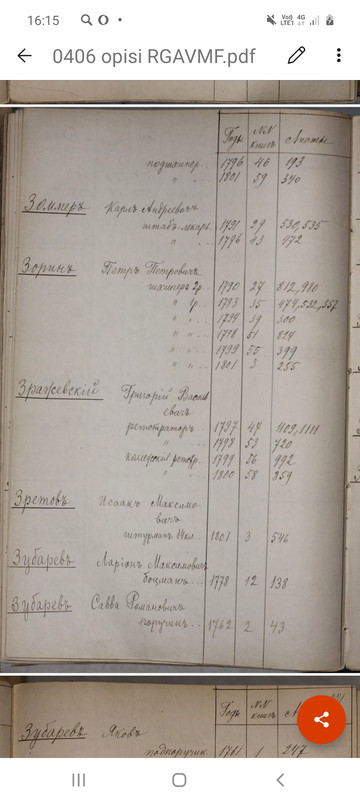 16:15
Vo)) 4G
LTE1
0406 opisi RGAVMF.pdf
Годъ №№ книгъ Листы
подшхипер. 1796 46 193
" . 1801 59 340
Зоммеръ Карлъ Андреевичъ
штабъ-лекарь 1791 29 530,535
" . 1796 43 472
Зоринъ Петръ Петровичъ
шхиперъ 2р. 1790 27 812,980
" 1р. 1793 35
" " 1794 39 300
" " 1798 51 824
" " 1799 55 399
" " 1801 3 255
Зражевскій Григорій Васильевичъ
регистраторъ 1797 47 1109,1111
" 1798 53 720
1799 56 992
" 1800 58 359
Зретовъ Исаакъ Максимо-
вичъ
штурман. 14кл. 1801 3 546
Зубаревъ Ларіонъ Максимовичъ
боцманъ 1778 12 138
Зубаревъ Савва Романовичъ
поручикъ 1762 2 43
Годъ №№ книгъ
Зубаревъ Яковъ
подпоручик. 1761 1 247